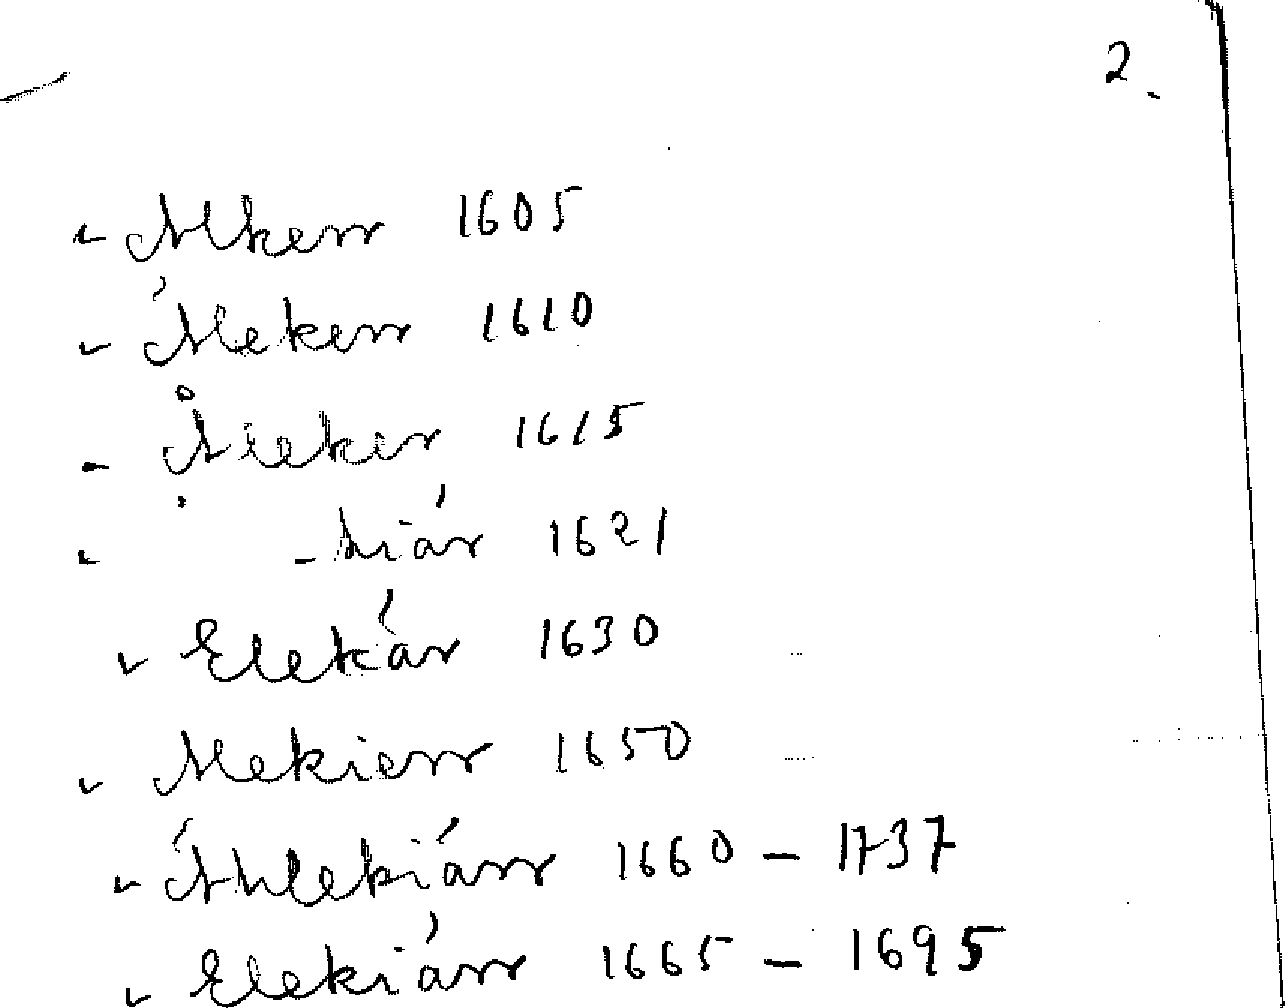 2.
Alkerr 1605
Álekerr 1610
Åleker 1615
- kiár 1621
Elekár 1630
Alekierr 1650
Áhlekiárr 1660 – 1737
Elekiárr 1665 – 1695